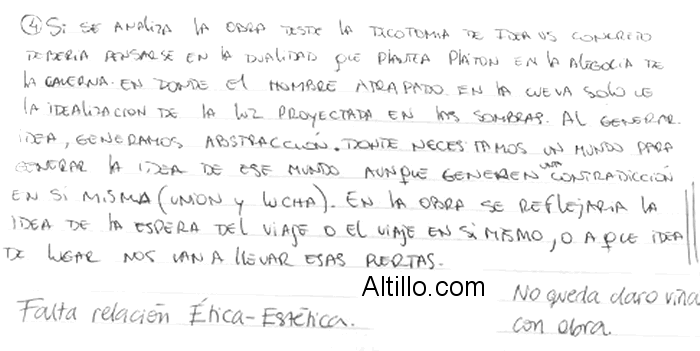 ④ SI SE ANALIZA LA OBRA DESDE LA DICOTOMIA DE IDEA VS CONCRETO
DEBERIA PENSARSE EN LA DUALIDAD QUE PLANTEA PLATON EN LA ALEGORIA DE
LA CAVERNA. EN DONDE EL HOMBRE ATRAPADO EN LA CUEVA SOLO VE
LA IDEALIZACION DE LA LUZ PROYECTADA EN LAS SOMBRAS. AL GENERAR
IDEA, GENERAMOS ABSTRACCIÓN. DONDE NECESITAMOS UN MUNDO PARA
GENERAR LA IDEA DE ESE MUNDO AUNQUE GENEREN UNA CONTRADICCIÓN
EN SI MISMA (UNION Y LUCHA). EN LA OBRA SE REFLEJARIA LA
IDEA DE LA ESPERA DEL VIAJE O EL VIAJE EN SI MISMO, O A QUE IDEA
DE LUGAR NOS VAN A LLEVAR ESAS PUERTAS.
Altillo.com
Falta relación Ética-Estética.
No queda claro
con obra.